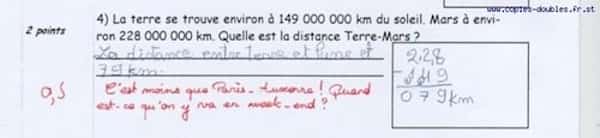 www.copies-doubles.fr.st
4) La terre se trouve environ à 149 000 000 km du soleil. Mars à envi-
2 points
ron 228 000 000 km. Quelle est la distance Terre-Mars ?
La distance entre terre et lune et
79 km.
0,5
C'est moins que Paris-Auxerre ! Quand
est-ce qu'on y va en week-end ?
228
- 149
079 km